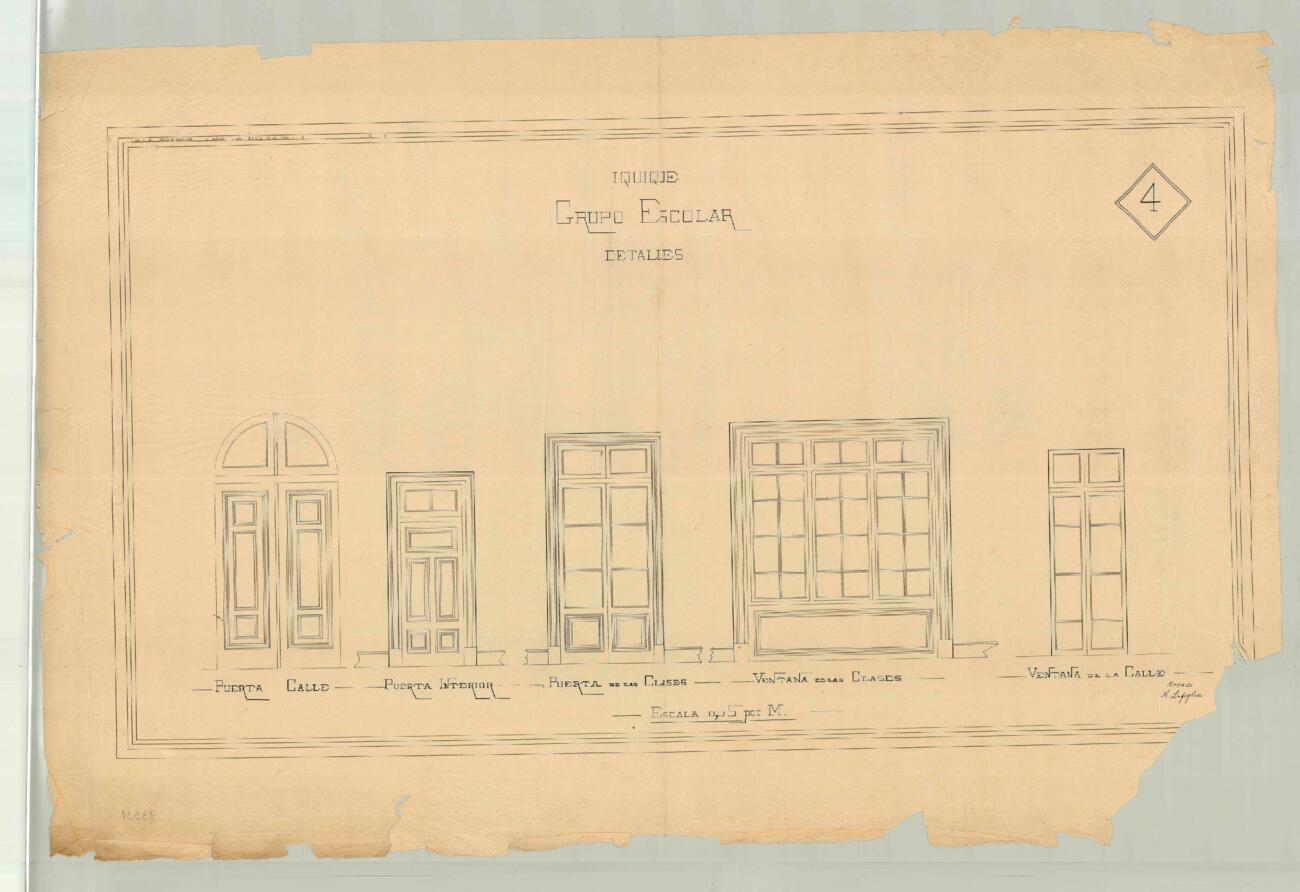 IQUIQUE
GRUPO ESCOLAR
DETALLES
4
PUERTA CALLE
PUERTA INTERIOR
PUERTA DE LAS CLASES
VENTANA DE LAS CLASES
VENTANA DE LA CALLE
ESCALA 0,05 por M.